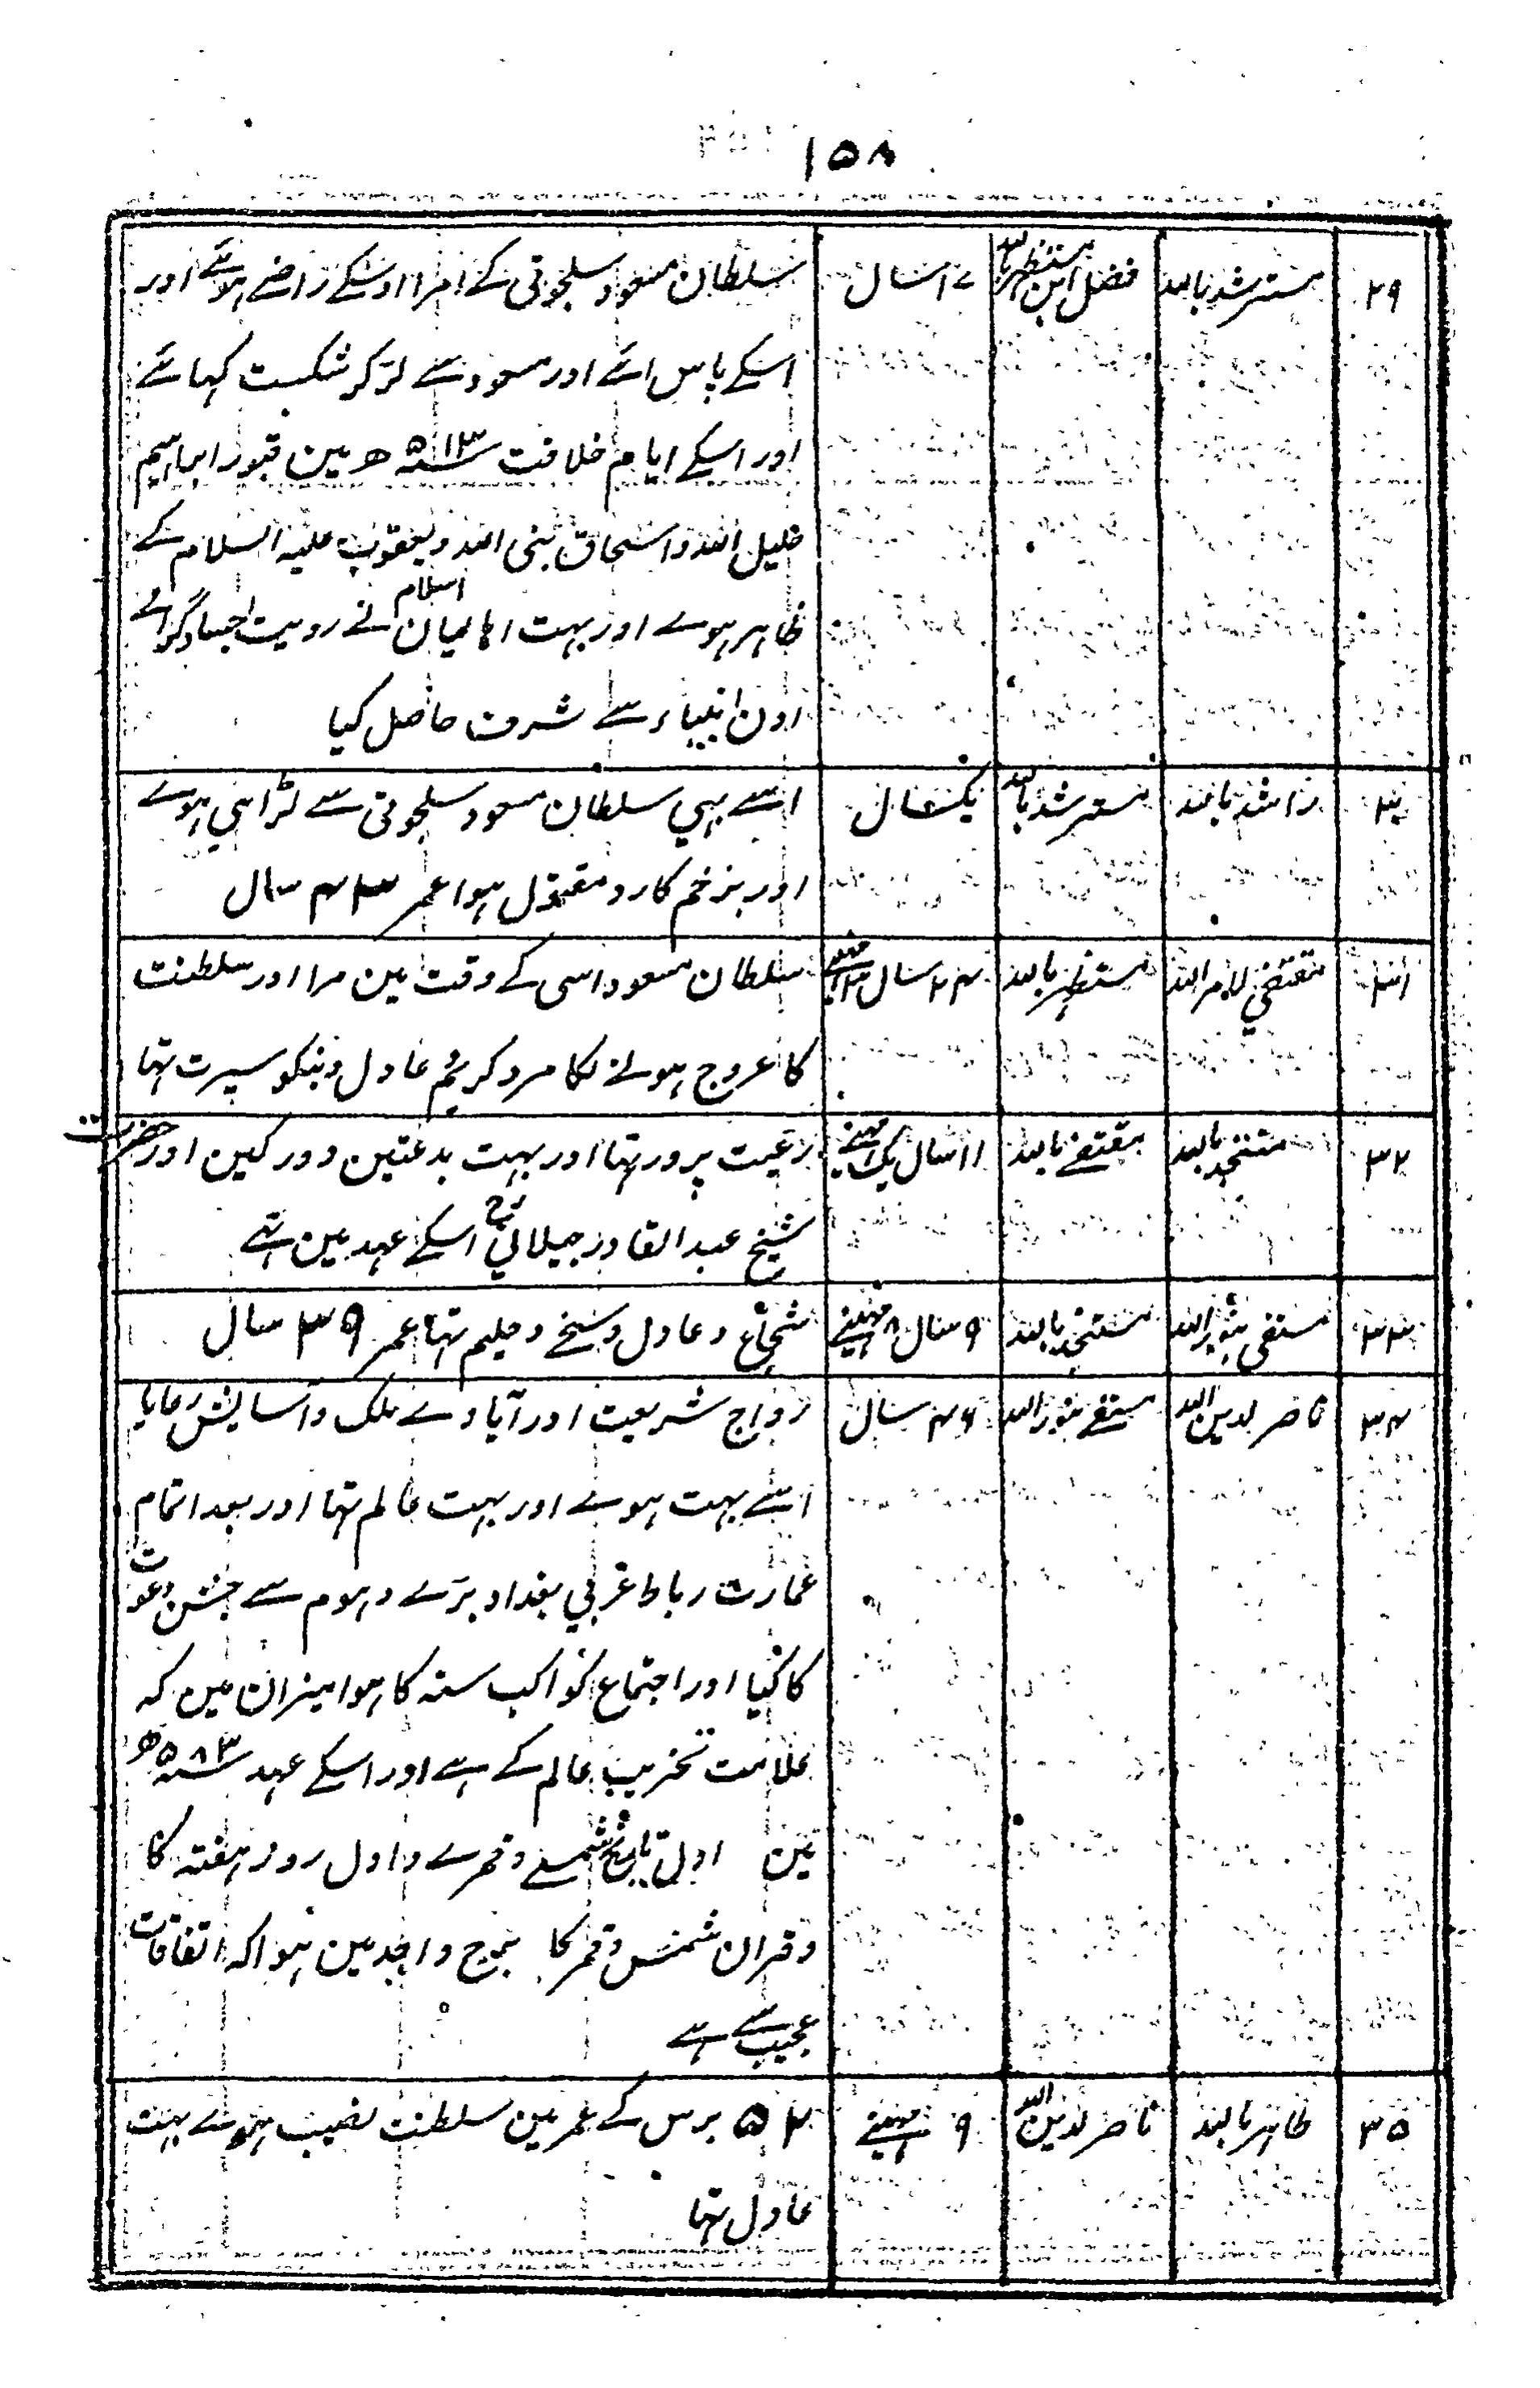 ۱۵۸
۲۹ مسترشد باللہ فضل ابن مستظہر باللہ ۱۷ سال سلطان مسعود سلجوقی کے امرا اوسکے راضے ہوئے اور
اسکے پاس ائے اور مسعود سے لڑکر شکست کہائے
اور اسکے ایام خلافت ۵۱۳ ھ مین قبور ابراہیم
خلیل اللہ و اسحاق نبی اللہ و یعقوب علیہ السلام کے
ظاہر ہوے اور بہت اہالیان اسلام نے رویت اجساد گرامے
اون انبیاء سے شرف حاصل کیا
۳۰ راشد باللہ مسترشد باللہ یکسال اسے بہی سلطان مسعود سلجوقی سے لڑاہی ہوے
اور بزخم کارد مقتول ہوا عمر ۴۳ سال
۳۱ مقتضی لامر اللہ مستظہر باللہ ۲۴ سال مہینے سلطان مسعود اسی کے وقت مین مرا اور سلطنت
کا عروج ہونے لگا مرد کریم عادل و نیکو سیرت تہا
۳۲ مستنجد باللہ مقتفے باللہ ۱۱ سال یک مہینے رعیت پرور تہا اور بہت بدعتین دور کین اور حضرت
شیخ عبد القادر جیلانی رح اسکے عہد مین تہے
۳۳ مستضی بنور اللہ مستنجد باللہ ۹ سال ۸ مہینے شجاع و عادل و سخے و حلیم تہا عمر ۳۹ سال
۳۴ ناصر لدین اللہ مستضے بنور اللہ ۴۶ سال رواج شریعت اور آبادے ملک و آسایش رعایا
اسے بہت ہوے اور بہت عالم تہا اور بعد اتمام
عمارت رباط غربی بغداد بڑے دہوم سے جشن دعوت
کا کیا اور اجتماع کواکب ستہ کا ہوا میزان مین کہ
علامت تخریب عالم کے ہے اور اسکے عہد ۵۸۳ ھ
مین اول تاریخ شمسے و قمرے و اول روز ہفتہ کا
و قران شمس و قمر کا بہ برج واحد مین ہوا کہ اتفاقات
عجیب سے ہے
۳۵ ظاہر باللہ ناصر لدین اللہ ۹ مہینے ۵۲ برس کے عمر مین سلطنت نصیب ہوے بہت
عادل تہا